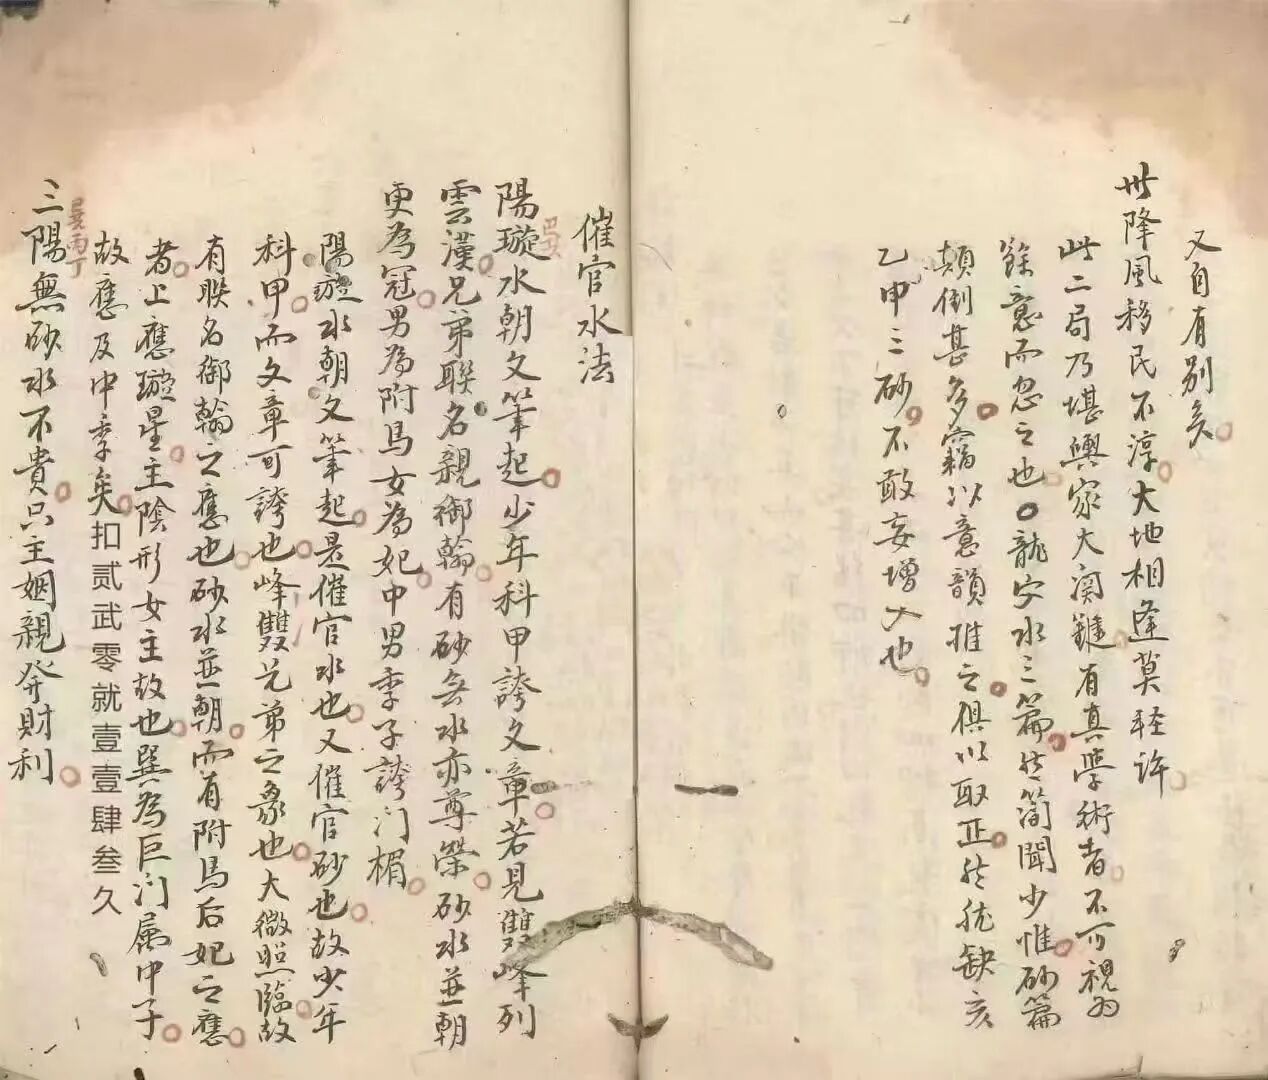 又自有别矣
世降風移民不淳大地相逢莫轻许
此二局乃堪輿家大関鍵有真學術者不可視为
餘意而忽之也龍穴水三篇從簡闻少惟砂篇
顛倒甚多窃以意韻推之俱以取正然脫缺亥
乙甲三砂不敢妄增入也
催官水法
巴女
陽璇水朝文筆起少年科甲誇文章若見雙峰列
雲漢兄弟聯名親御翰有砂無水亦尊荣砂水並朝
更為冠男為附馬女為妃中男季子誇门楣
陽璇水朝文筆起是催官水也又催官砂也故少年
科甲而文章可誇也峰雙兄弟之象也大微照臨故
有联名御翰之應也砂水並朝而有附馬后妃之應
者上應璇星主陰形女主故也巽為巨门属中子
故應及中季矣
扣贰武零就壹壹肆叁久
艮丙丁
三陽無砂水不貴只主姻親發财利